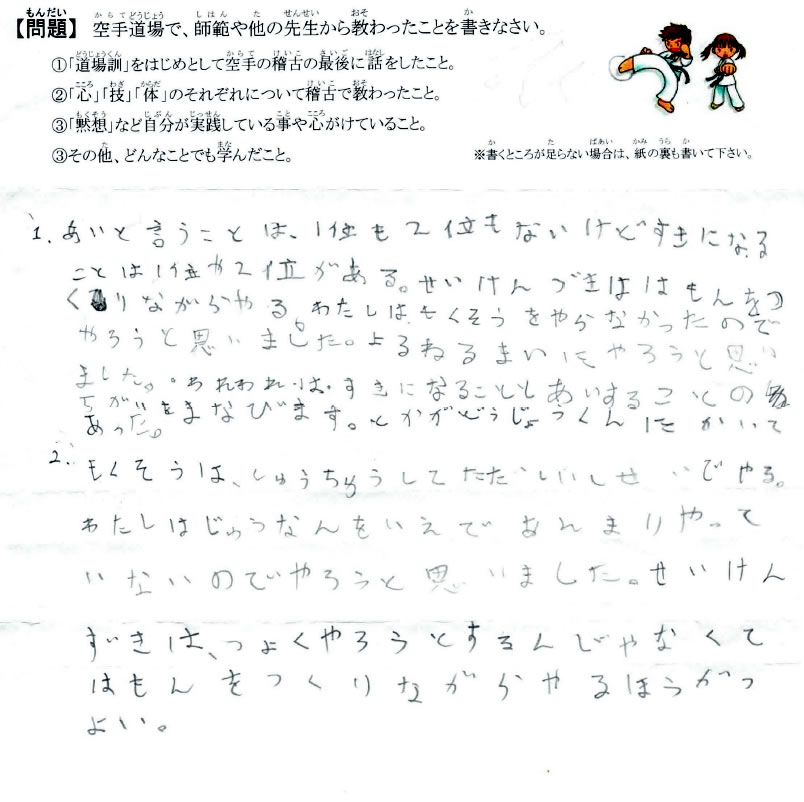 【問題】 空手道場で、師範や他の先生から教わったことを書きなさい。
①「道場訓」をはじめとして空手の稽古の最後に話をしたこと。
②「心」「技」「体」のそれぞれについて稽古で教わったこと。
③「黙想」など自分が実践している事や心がけていること。
③その他、どんなことでも学んだこと。
※書くところが足らない場合は、紙の裏も書いて下さい。
1. あいと言うことは、1位も2位もないけどすきになる
ことは1位や2位がある。せいけんづきははもんをつ
くりながらやる。わたしは、もくそうをやらなかったので
やろうと思いました。よるねるまいにやろうと思い
ました。われわれは、すきになることとあいすることの
ちがいをまなびます。とかがどうじょうくんにかいて
あった。
2. もくそうは、しゅうちゅうしてただしいしせいでやる。
わたしはじゅうなんをいえであんまりやって
いないのでやろうと思いました。せいけん
ずきは、つよくやろうとするんじゃなくて
はもんをつくりながらやるほうがつ
よい。